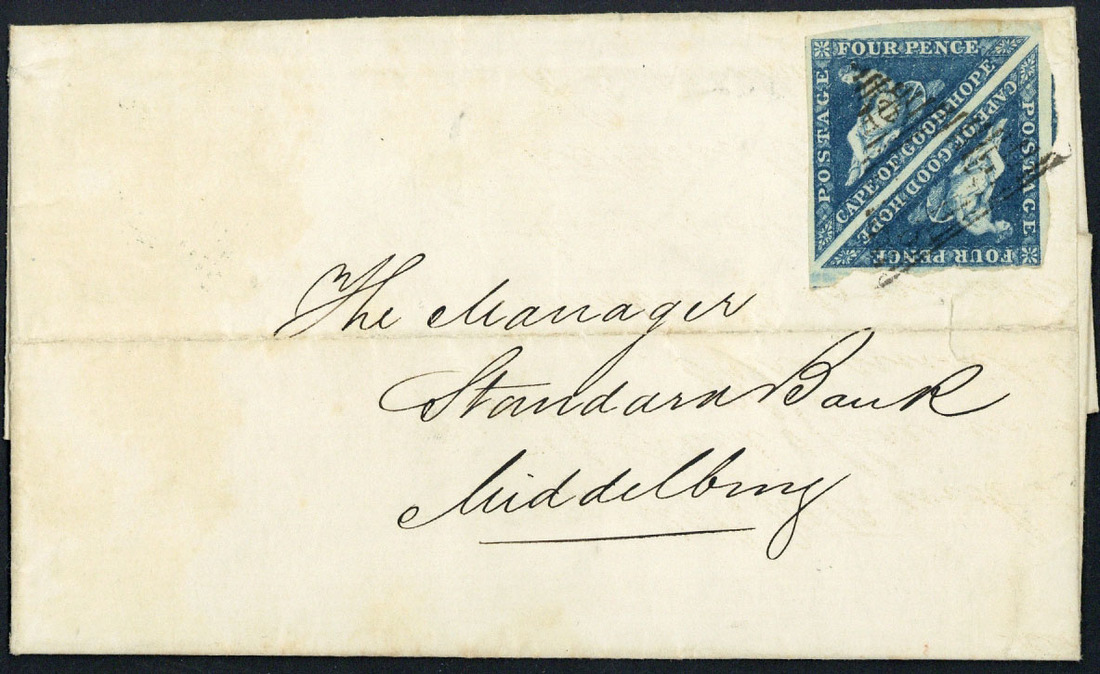 FOUR PENCE
POSTAGE
CAPE OF GOOD HOPE
CAPE OF GOOD HOPE
POSTAGE
FOUR PENCE
The Manager
Standard Bank
Middelburg